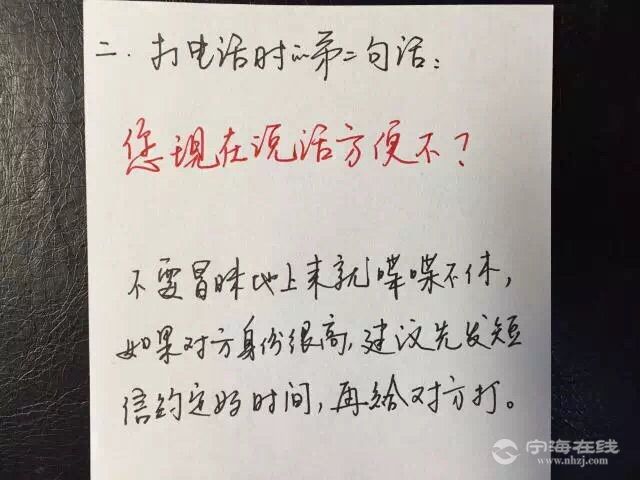 二．打电话时的第二句话：
您现在说话方便不？
不要冒昧地上来就喋喋不休，
如果对方身份很高，建议先发短
信约定好时间，再给对方打。
宁海在线
www.nhzj.com